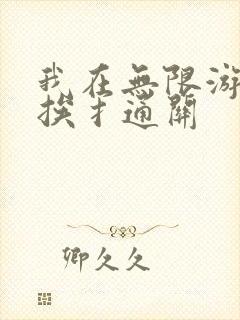 我在無限游
挨扌通關
卿久久